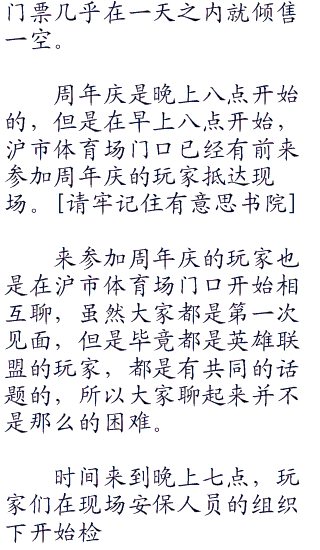 门票几乎在一天之内就倾售
一空。
周年庆是晚上八点开始
的，但是在早上八点开始，
沪市体育场门口已经有前来
参加周年庆的玩家抵达现
场。[请牢记住有意思书院]
来参加周年庆的玩家也
是在沪市体育场门口开始相
互聊，虽然大家都是第一次
见面，但是毕竟都是英雄联
盟的玩家，都是有共同的话
题的，所以大家聊起来并不
是那么的困难。
时间来到晚上七点，玩
家们在现场安保人员的组织
下开始检